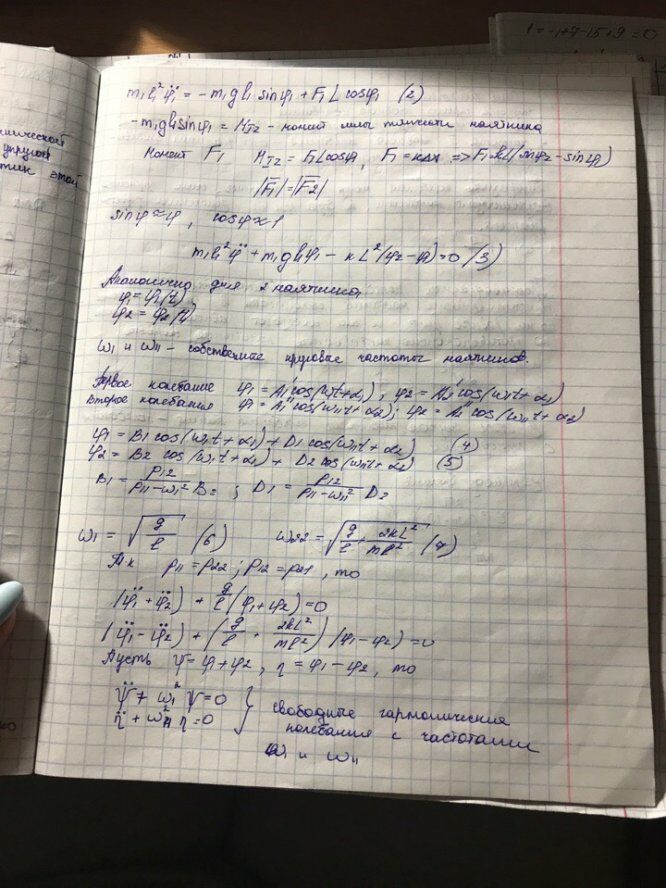 1 = -1+9-15+9=0
m₁l₁²φ̈₁ = -m₁gl₁ sinφ₁ + F₁L cosφ₁ (2)
-m₁gl₁sinφ₁ = M₁₂ - момент силы тяжести маятника
Момент F₁ M₁₂ = F₁Lcosφ₁, F₁ = kΔx => F₁ kL(sinφ₂ - sinφ₁)
|F̅₁| = |F̅₂|
sinφ ≈ φ, cosφ ≈ 1
m₁l₁²φ̈ + m₁gl₁φ₁ - kL²(φ₂ - φ₁) = 0 (3)
Аналогично для 2 маятника
φ₁ = φ₁(t)
φ₂ = φ₂(t)
ω₁ и ω₁₁ - собственные круговые частоты маятников.
Первое колебание φ₁ = A₁'cos(ω₁t+α₁), φ₂ = A₂'cos(ω₁t+α₁)
Второе колебания φ₁ = A₁''cos(ω₁₁t+α₂); φ₂ = A₂''cos(ω₁₁t+α₂)
φ₁ = B₁ cos(ω₁t+α₁) + D₁ cos(ω₁₁t+α₂) (4)
φ₂ = B₂ cos(ω₁t+α₁) + D₂ cos(ω₁₁t+α₂) (5)
B₁ = p₁₂/(p₁₁-ω₁²) B₂ ; D₁ = p₁₂/(p₁₁-ω₁₁²) D₂
ω₁ = √(g/l) (6) ω₂₂ = √(g/l + 2kL²/ml²) (7)
Т.к p₁₁ = p₂₂ ; p₁₂ = p₂₁, то
(φ̈₁ + φ̈₂) + g/l (φ₁+φ₂) = 0
(φ̈₁ - φ̈₂) + (g/l + 2kL²/ml²) (φ₁-φ₂) = 0
Пусть ψ = φ₁+φ₂, η = φ₁-φ₂, то
ψ̈ + ω₁²ψ = 0
η̈ + ω₁₁²η = 0
} свободные гармонические
колебания с частотами
ω₁ и ω₁₁
упругой
этой